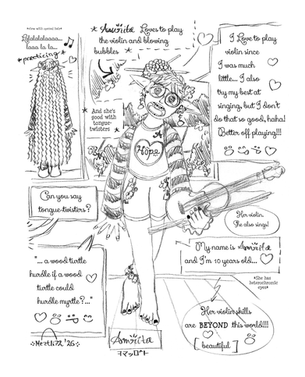 Lalalalaaaa...
laaa la la...
*practicing*
* Amrita Loves to play
the violin and blowing
bubbles *
* And she's
good with
tongue-
twisters *
I Love to play
violin since
I was much
little... I also
try my best at
singing, but I don't
do that so good, haha!
Better off playing!!!
A
Hope
Can you say
tongue-twisters?
"... a wood turtle
hurdle if a wood
turtle could
hurdle myrtle?..."
Her violin.
She also sings!
My name is Amrita
and I'm 10 years old...
*She has
heterochromic
eyes*
Her violin skills
are BEYOND this world!!!
[ beautiful ]
Amrita